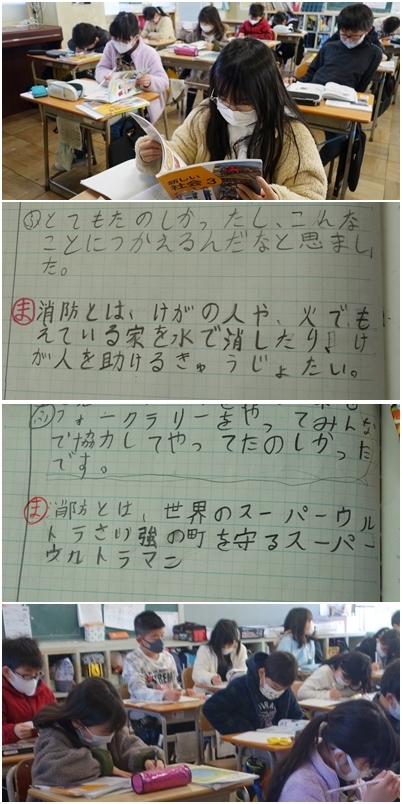 新しい
社会 3
とてもたのしかったし、こんな
ことにつかえるんだなと思まし
た。
ま 消防とは、けがの人や、火でも
えている家を水で消したり、け
が人を助けるきゅうじょたい。
ォークラリーをやってみんな
で協力してやってたのしかった
です。
ま 消防とは、世界のスーパーウル
トラさい強の町を守るスーパー
ウルトラマン